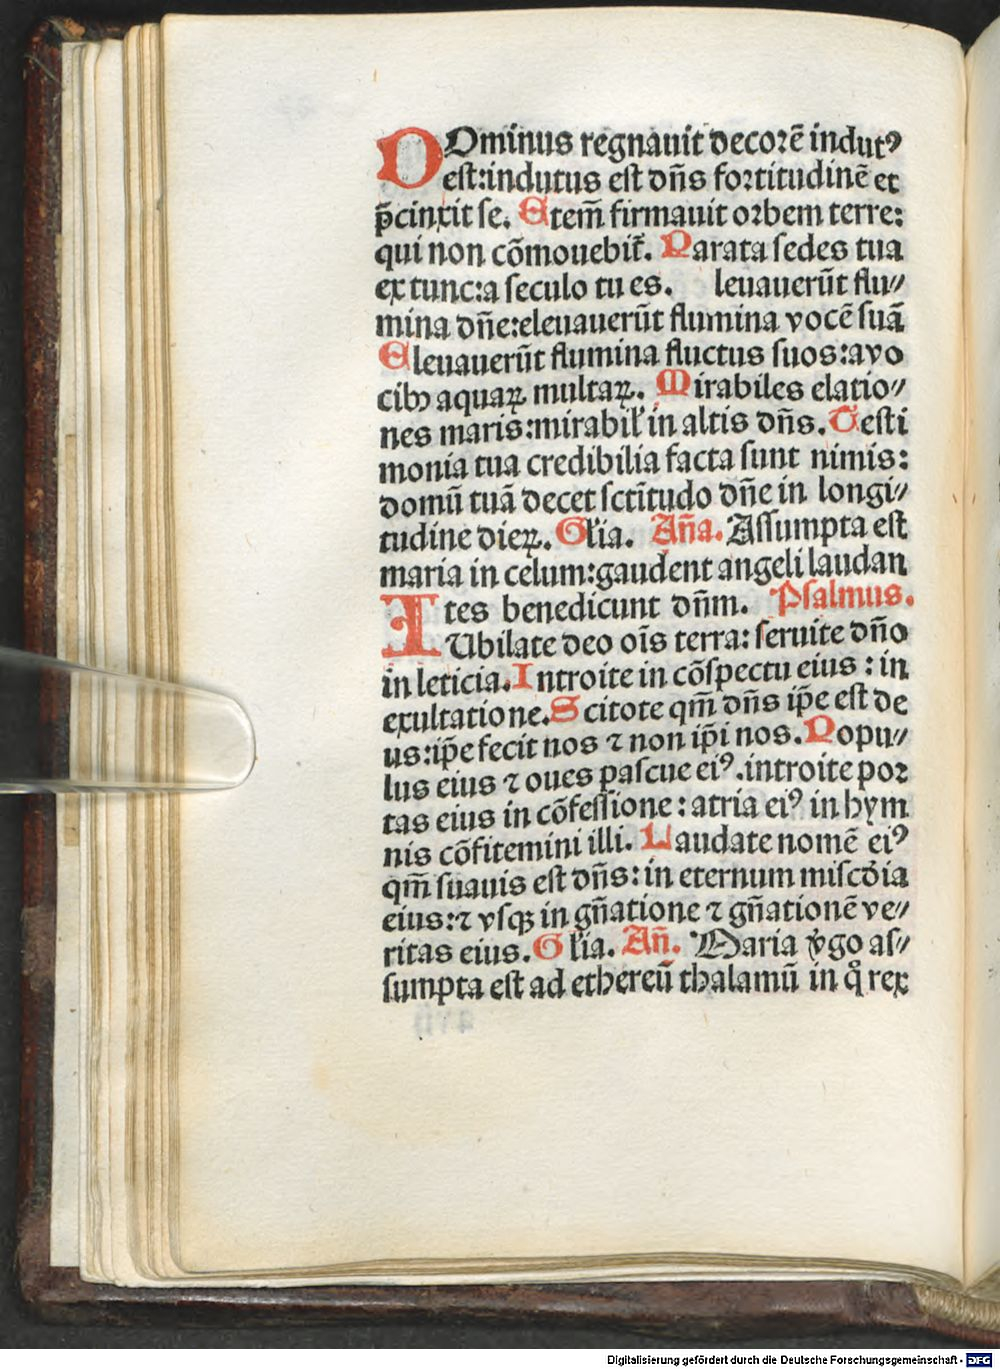 DOminus regnauit decorẽ indutꝰ
est:indutus est dñs fortitudinẽ et
p̃cinxit se. Etem̃ firmauit orbem terre:
qui non cõmouebit̃. Parata sedes tua
ex tunc:a seculo tu es. leuauerũt flu//
mina dñe:eleuauerũt flumina vocẽ suã
Eleuauerũt flumina fluctus suos:a vo
cibꝰ aquaꝝ multaꝝ. Mirabiles elatio//
nes maris:mirabiľ in altis dñs. Testi
monia tua credibilia facta sunt nimis:
domũ tuã decet sctĩtudo dñe in longi//
tudine dieꝝ. Gľia. Aña. Assumpta est
maria in celum:gaudent angeli laudan
tes benedicunt dñm. Psalmus.
IUbilate deo oĩs terra: seruite dño
in leticia. Introite in cõspectu eius : in
exultatione. Scitote qm̃ dñs ip̃e est de
us:ip̃e fecit nos ⁊ non ip̃i nos. Popu//
lus eius ⁊ oues pascue eiꝰ.introite por
tas eius in cõfessione : atria eiꝰ in hym
nis cõfitemini illi. Laudate nomẽ eiꝰ
qm̃ suauis est dñs: in eternum miscd̃ia
eius:⁊ vsqꝫ in gñatione ⁊ gñationẽ ve//
ritas eius. Gľia. Añ. Maria v̾go as//
sumpta est ad ethereũ thalamũ in qͦ rex
Digitalisierung gefördert durch die Deutsche Forschungsgemeinschaft - DFG